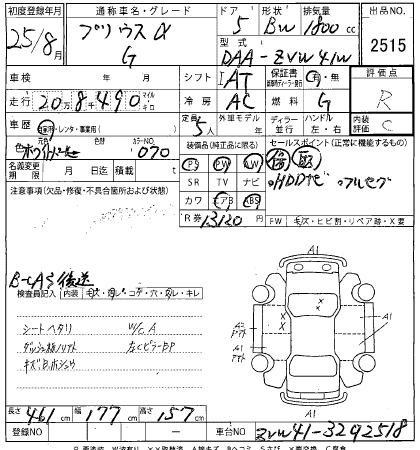 初度登録年月 通称車名・グレード ドア 形状 排気量 出品NO.
25/8月 プリウスα G 5 BW 1800cc 2515
型式 DAA-ZVW41W
車検 年 月 シフト IAT 保証書 有・無 評価点 R
走行 20万8千490 マイル キロ 冷房 AC 燃料 G 内装 C
車歴 自家用・レンタ・事業用( ) 定員 5人 外車モデル 年 ディーラー 並行 ハンドル 左・右
色 元色 ホワイトパール 色替 カラーNO. 070 装備品(純正品に限る) セールスポイント(正常に機能するもの)
名義変更期限 月 日迄 積載 t PS PW AW
・HDDナビ ・フルセグ
注意事項(欠品・修復・不具合箇所および状態) SR TV ナビ
カワ エアB ABS
R券 13120 FW キズ・ヒビ割・リペア跡・X要
B-CAS後送
検査員記入 内装 キズ・汚レ・コゲ・穴・スレ・キレ
シートヘタリ W/C A
ダッシュ板ソリフト 左CピラーBP
キズB、ボシュウ
A1
X
X X
A1
A1
A1
A1
長さ 461cm 幅 177cm 高さ 157cm
登録NO 車台NO ZVW41-3292518